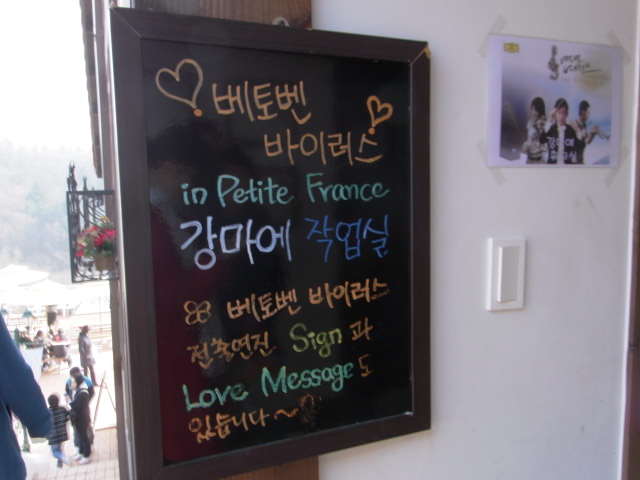 베토벤
바이러스
in Petite France
강마에 작업실
베토벤 바이러스
전출연진 Sign 과
Love Message 도
있습니다~